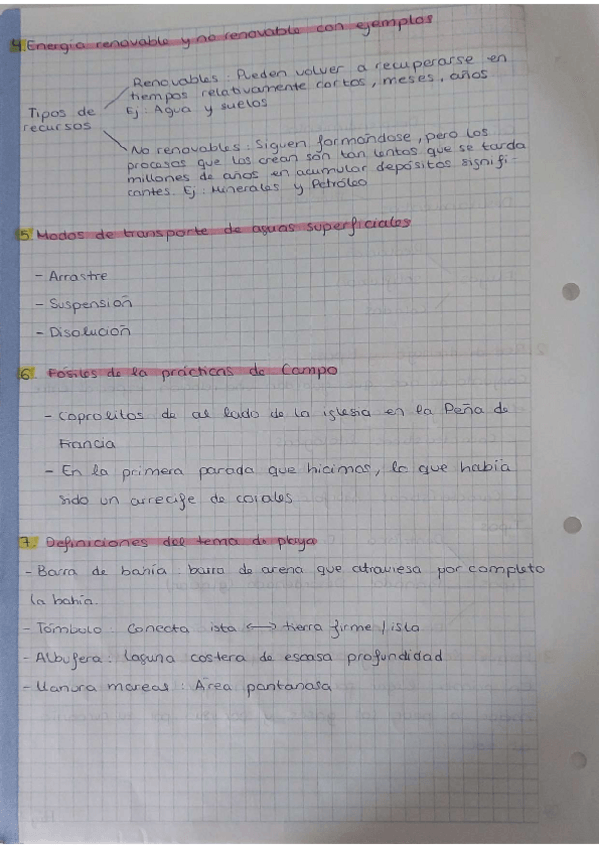 4. Energía renovable y no renovable con ejemplos
Renovables: Pueden volver a recuperarse en
tiempos relativamente cortos, meses, años
Ej: Agua y suelos
Tipos de
recursos
No renovables: Siguen formándose, pero los
procesos que los crean son tan lentos que se tarda
millones de años en acumular depósitos signifi-
cantes. Ej: Minerales y Petróleo
5 Modos de transporte de aguas superficiales
- Arrastre
- Suspensión
- Disolución
6. Fósiles de la prácticas de Campo
- Coprolitos de al lado de la iglesia en la Peña de
Francia
- En la primera parada que hicimos, lo que había
sido un arrecife de corales
7. Definiciones del tema de playa
- Barra de bahía: barra de arena que atraviesa por completo
la bahía.
- Tómbulo: Conecta isla <-> tierra firme / isla
- Albufera: laguna costera de escasa profundidad
- Llanura mareas: Área pantanosa